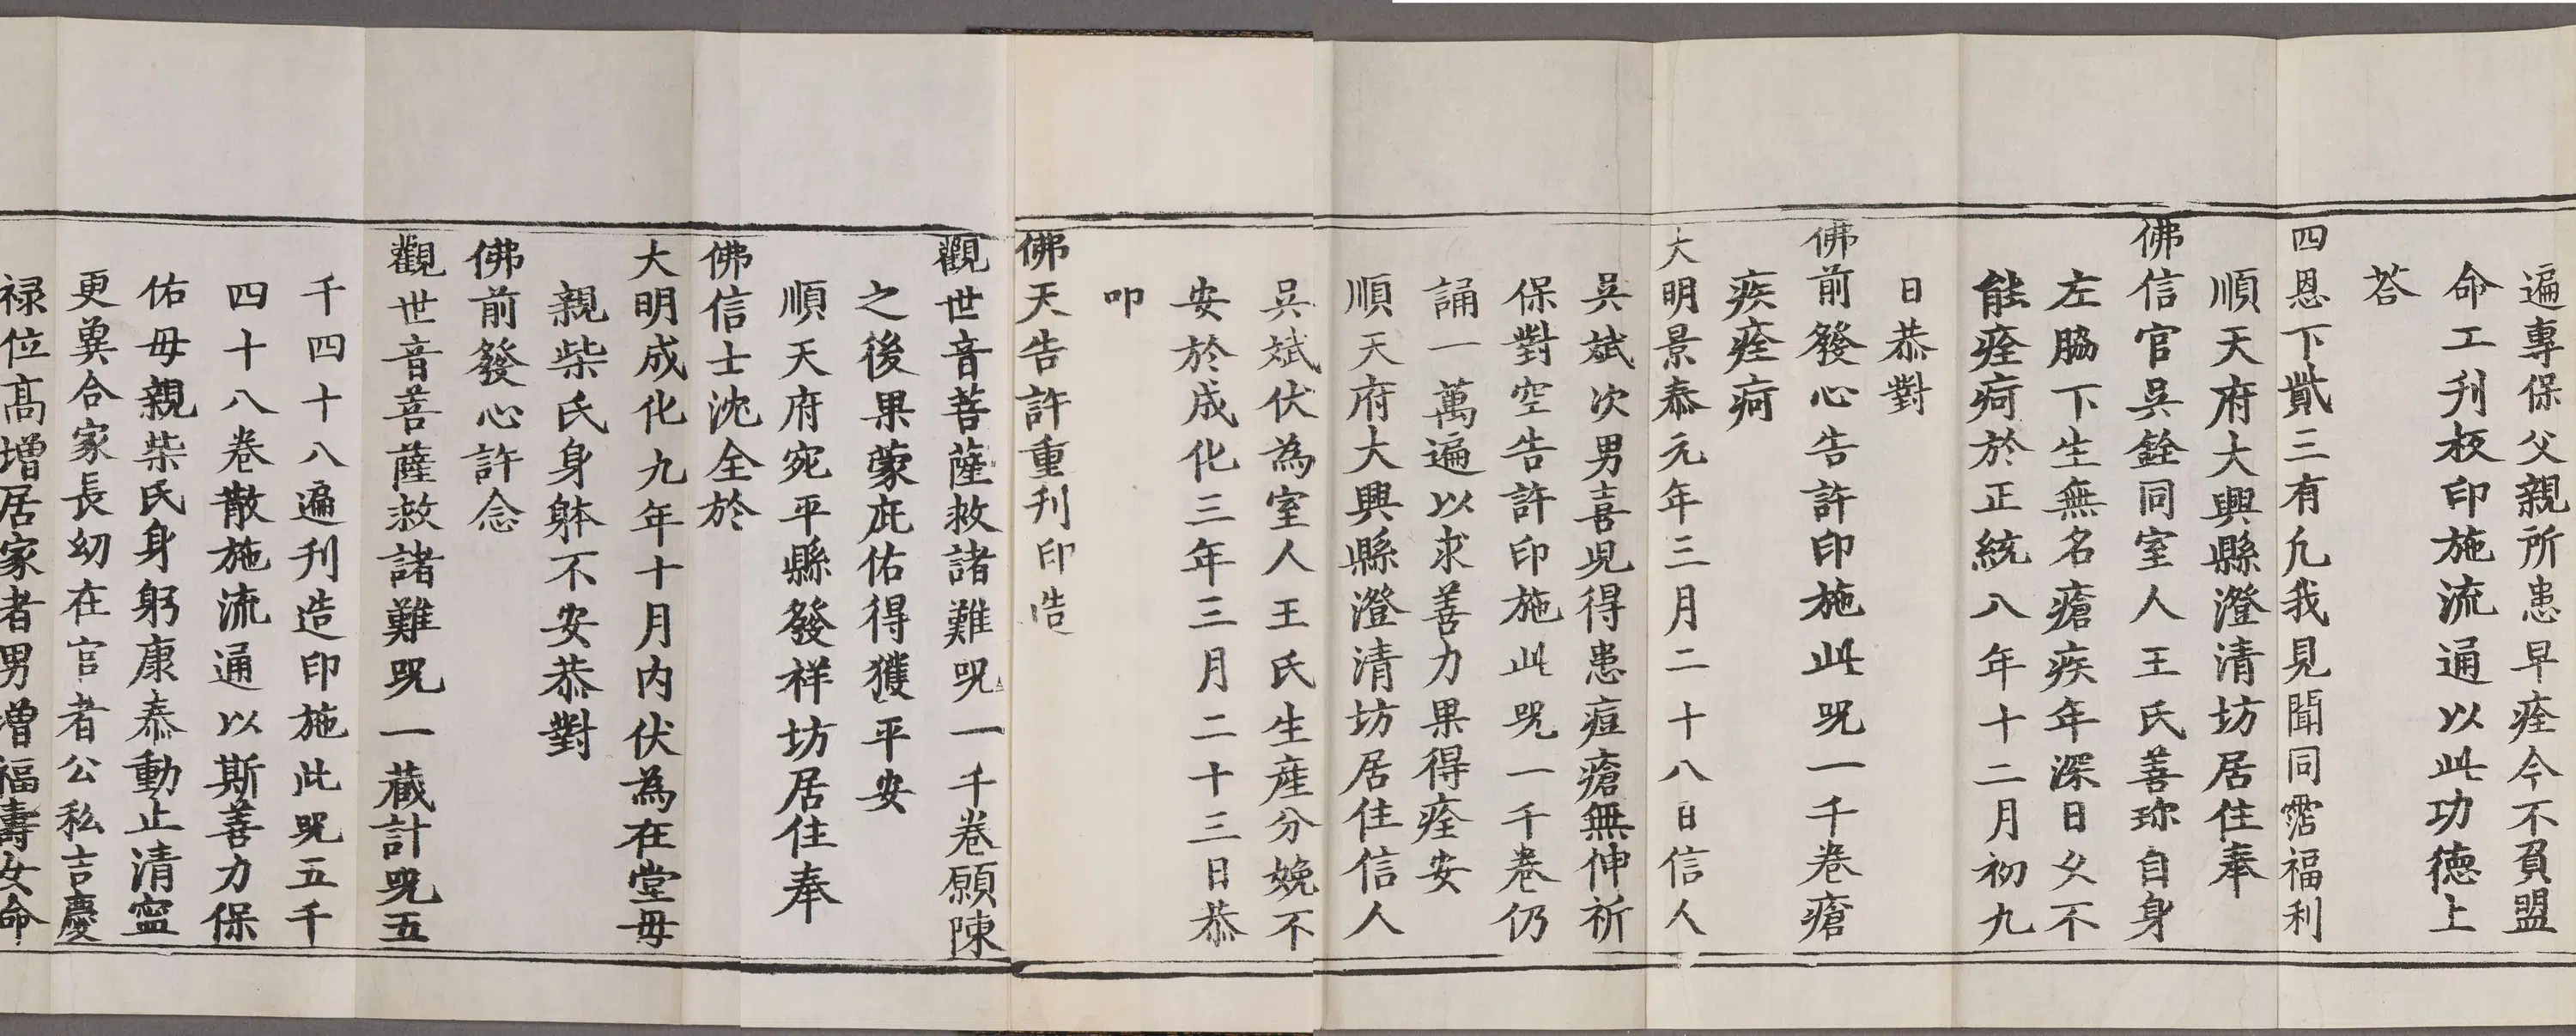 遍專保父親所患早痊今不負盟
命工刋板印施流通以此功德上
荅
四恩下貲三有凢我見聞同霑福利
順天府大興縣澄清坊居住奉
佛信官吳銓同室人王氏善珎自身
左脇下生無名瘡疾年深日久不
能痊疴於正統八年十二月初九
日恭對
佛前發心告許印施此呪一千卷瘡
疾痊疴
大明景泰元年三月二十八日信人
吳斌次男喜兒得患痘瘡無伸祈
保對空告許印施此呪一千卷仍
誦一萬遍以求善力果得痊安
順天府大興縣澄清坊居住信人
吳斌伏為室人王氏生產分娩不
安於成化三年三月二十三日恭
叩
佛天告許重刋印造
觀世音菩薩救諸難呪一千卷願陳
之後果蒙庇佑得獲平安
順天府宛平縣發祥坊居住奉
佛信士沈全於
大明成化九年十月內伏為在堂母
親柴氏身躰不安恭對
佛前發心許念
觀世音菩薩救諸難呪一藏計呪五
千四十八遍刋造印施此呪五千
四十八卷散施流通以斯善力保
佑母親柴氏身躬康泰動止清寍
更兾合家長幼在官者公私吉慶
禄位髙增居家者男增福壽女命